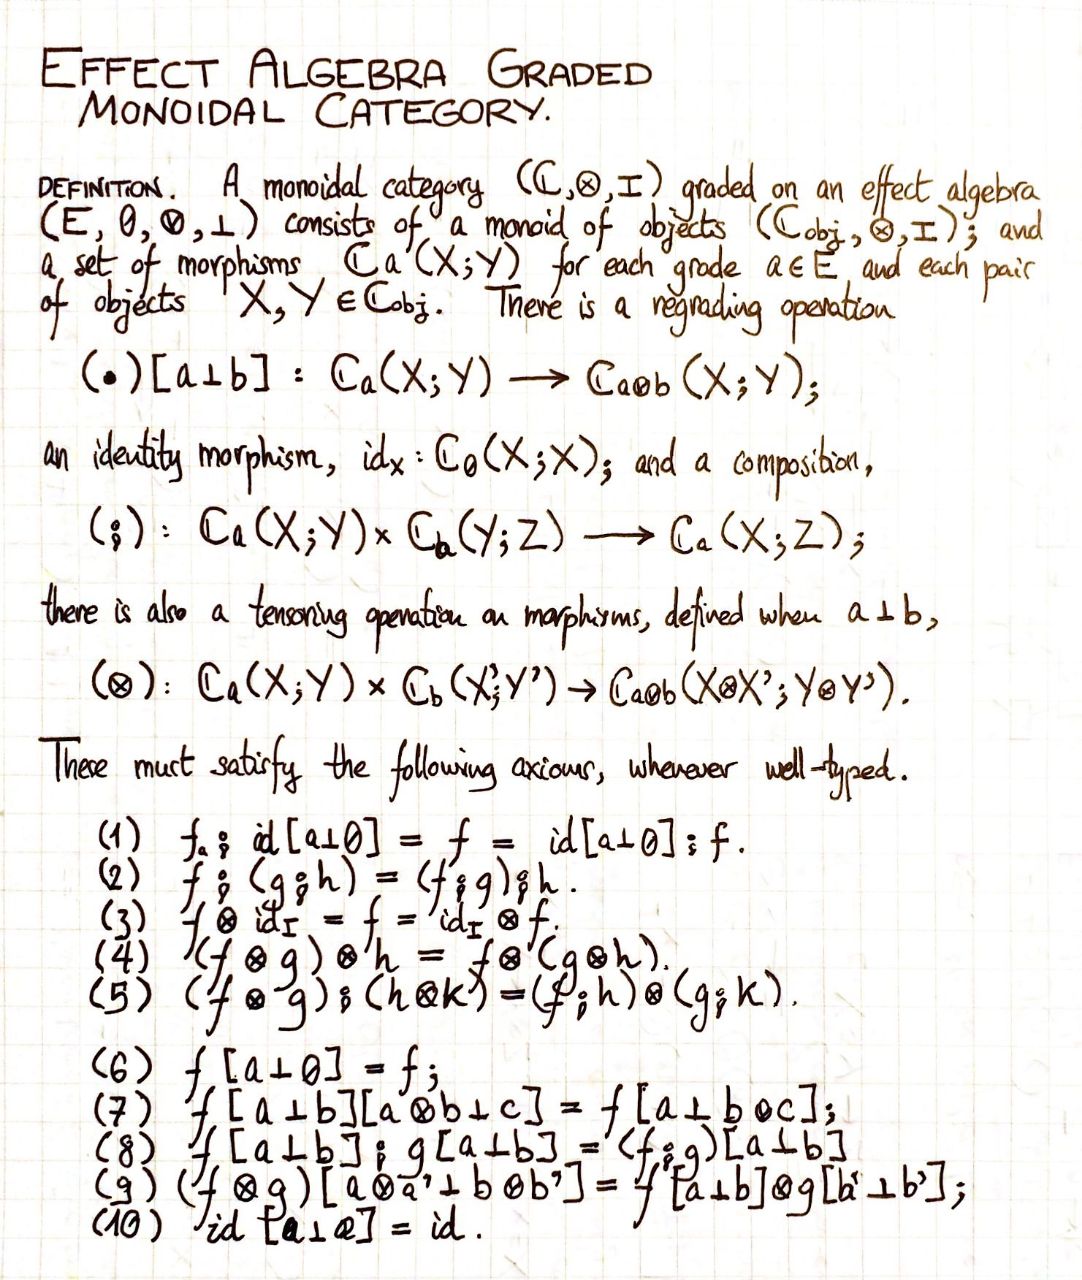 EFFECT ALGEBRA GRADED
MONOIDAL CATEGORY.
DEFINITION. A monoidal category (ℂ,⊗,I) graded on an effect algebra
(E, 0, ⦸, ⊥) consists of a monoid of objects (ℂobj, ⊗, I); and
a set of morphisms ℂa(X;Y) for each grade a∈E and each pair
of objects X, Y ∈ ℂobj. There is a regrading operation
(•)[a⊥b] : ℂa(X;Y) ⟶ ℂa⦸b(X;Y);
an identity morphism, idx : ℂ0(X;X); and a composition,
(⨟) : ℂa(X;Y) × ℂa(Y;Z) ⟶ ℂa(X;Z);
there is also a tensoring operation on morphisms, defined when a⊥b,
(⊗) : ℂa(X;Y) × ℂb(X';Y') → ℂa⦸b(X⊗X';Y⊗Y').
These must satisfy the following axioms, whenever well-typed.
(1) fa ⨟ id[a⊥0] = f = id[a⊥0] ⨟ f.
(2) f ⨟ (g⨟h) = (f⨟g)⨟h.
(3) f ⊗ idI = f = idI ⊗ f.
(4) (f ⊗ g) ⊗ h = f⊗(g⊗h).
(5) (f ⊗ g) ⨟ (h⊗k) = (f⨟h)⊗(g⨟k).
(6) f [a⊥0] = f;
(7) f [a⊥b][a⦸b⊥c] = f[a⊥b⦸c];
(8) f [a⊥b] ⨟ g[a⊥b] = (f⨟g)[a⊥b]
(9) (f ⊗ g)[a⦸a'⊥b⦸b'] = f[a⊥b]⊗g[b'⊥b'];
(10) id = id.